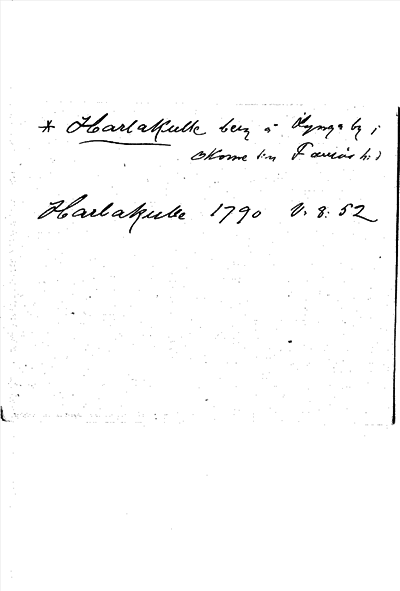 * Harlakulle berg å Lynga by i
Okome sn Faurås hd
Harlakulle 1790 V. 8: 52